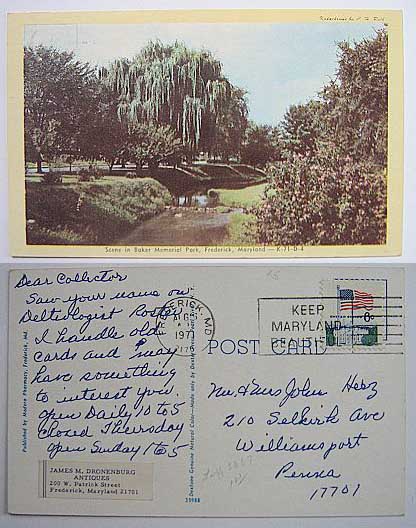 Scene in Baker Memorial Park, Frederick, Maryland — K-71-D-4
Dear Collector
Saw your name on
Deltiologist Roster
I handle old
cards and I may
have something
to interest you.
open Daily 10 to 5
Closed Thursday
Open Sunday 1 to 5
JAMES M. DRONENBURG
ANTIQUES
200 W. Patrick Street
Frederick, Maryland 21701
Published by Modern Pharmacy, Frederick, Md.
FREDERICK, MD.
1971
KEEP
MARYLAND
BEAUTIFUL
POST CARD
Mr & Mrs John
210 Selkirk Ave
Williamsport
Penna
17701